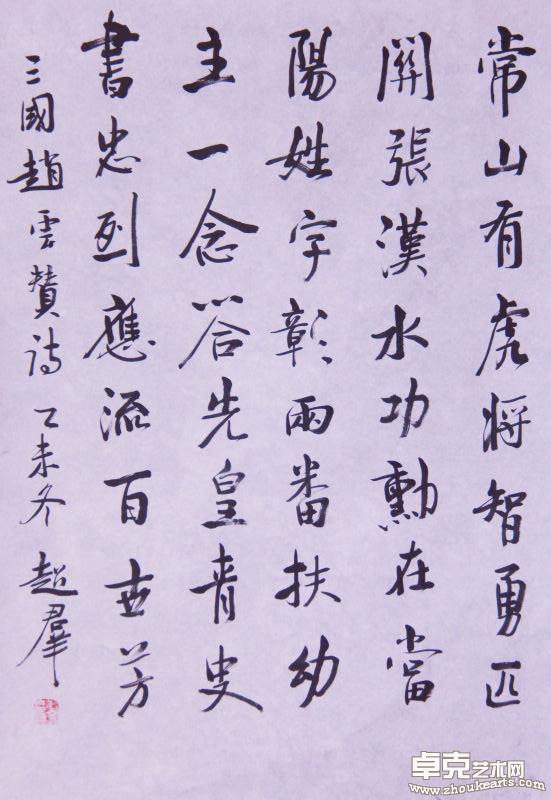 常山有虎将智勇匹
關張漢水功勳在當
陽姓字彰兩番扶幼
主一念答先皇青史
書忠烈應流百世芳
三國趙雲贊詩 乙未冬 超群
卓克艺术网
www.zhoukearts.com